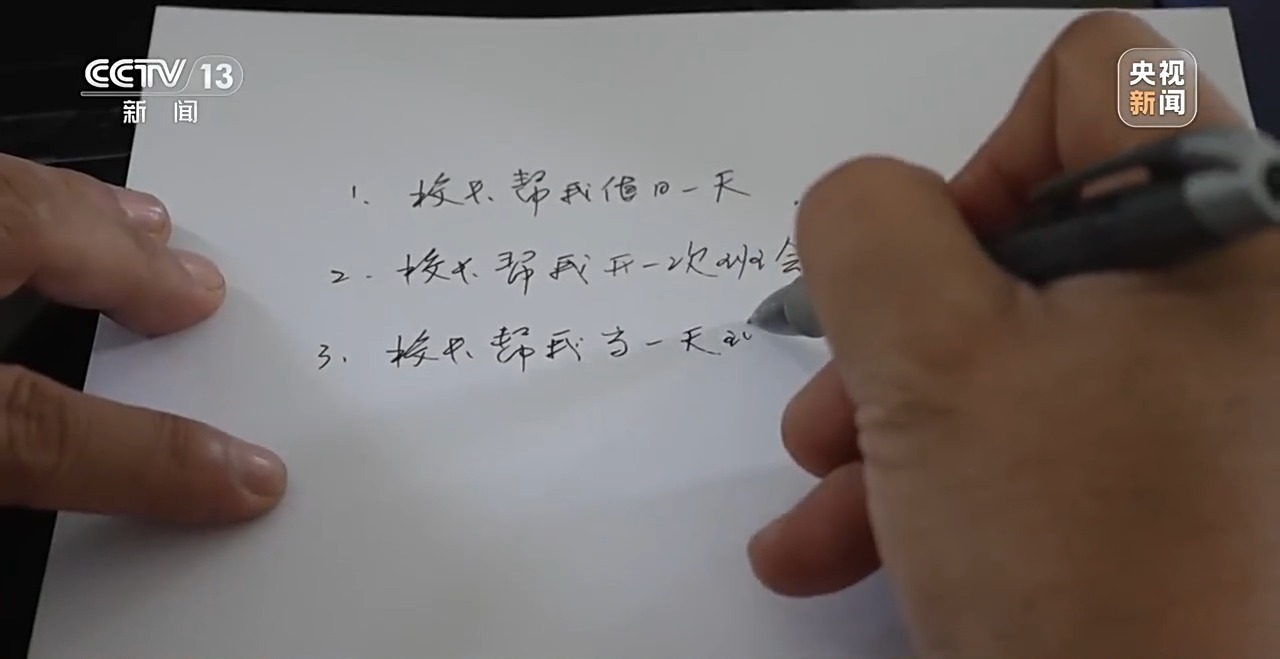 CCTV 13
新闻
央视
新闻
1. 校长帮我值日一天
2. 校长帮我开一次班会
3. 校长帮我当一天